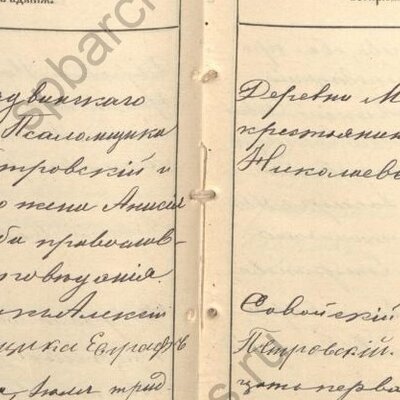 двинскаго
Псаломщика
тровскій и
о жена Анисія
ба православ-
новѣданія.
Алексій
щика Евграфъ
Іюля трид
Деревни М
крестьянин
Николаев
Совойскій
Петровскій.
цать перва
spbarch